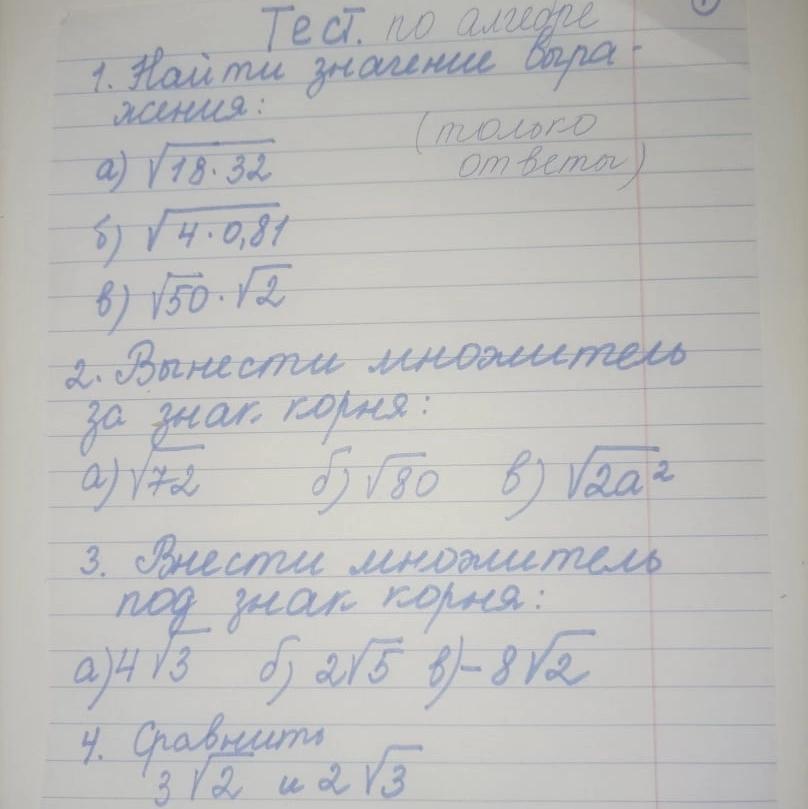 Тест. по алгебре
1. Найти значение выра-
жения:
(только
ответы)
а) √18·32
б) √4·0,81
в) √50·√2
2. Вынести множитель
за знак корня:
а) √72 б) √80 в) √2a²
3. Внести множитель
под знак корня:
а) 4√3 б) 2√5 в) -8√2
4. Сравнить
3√2 и 2√3